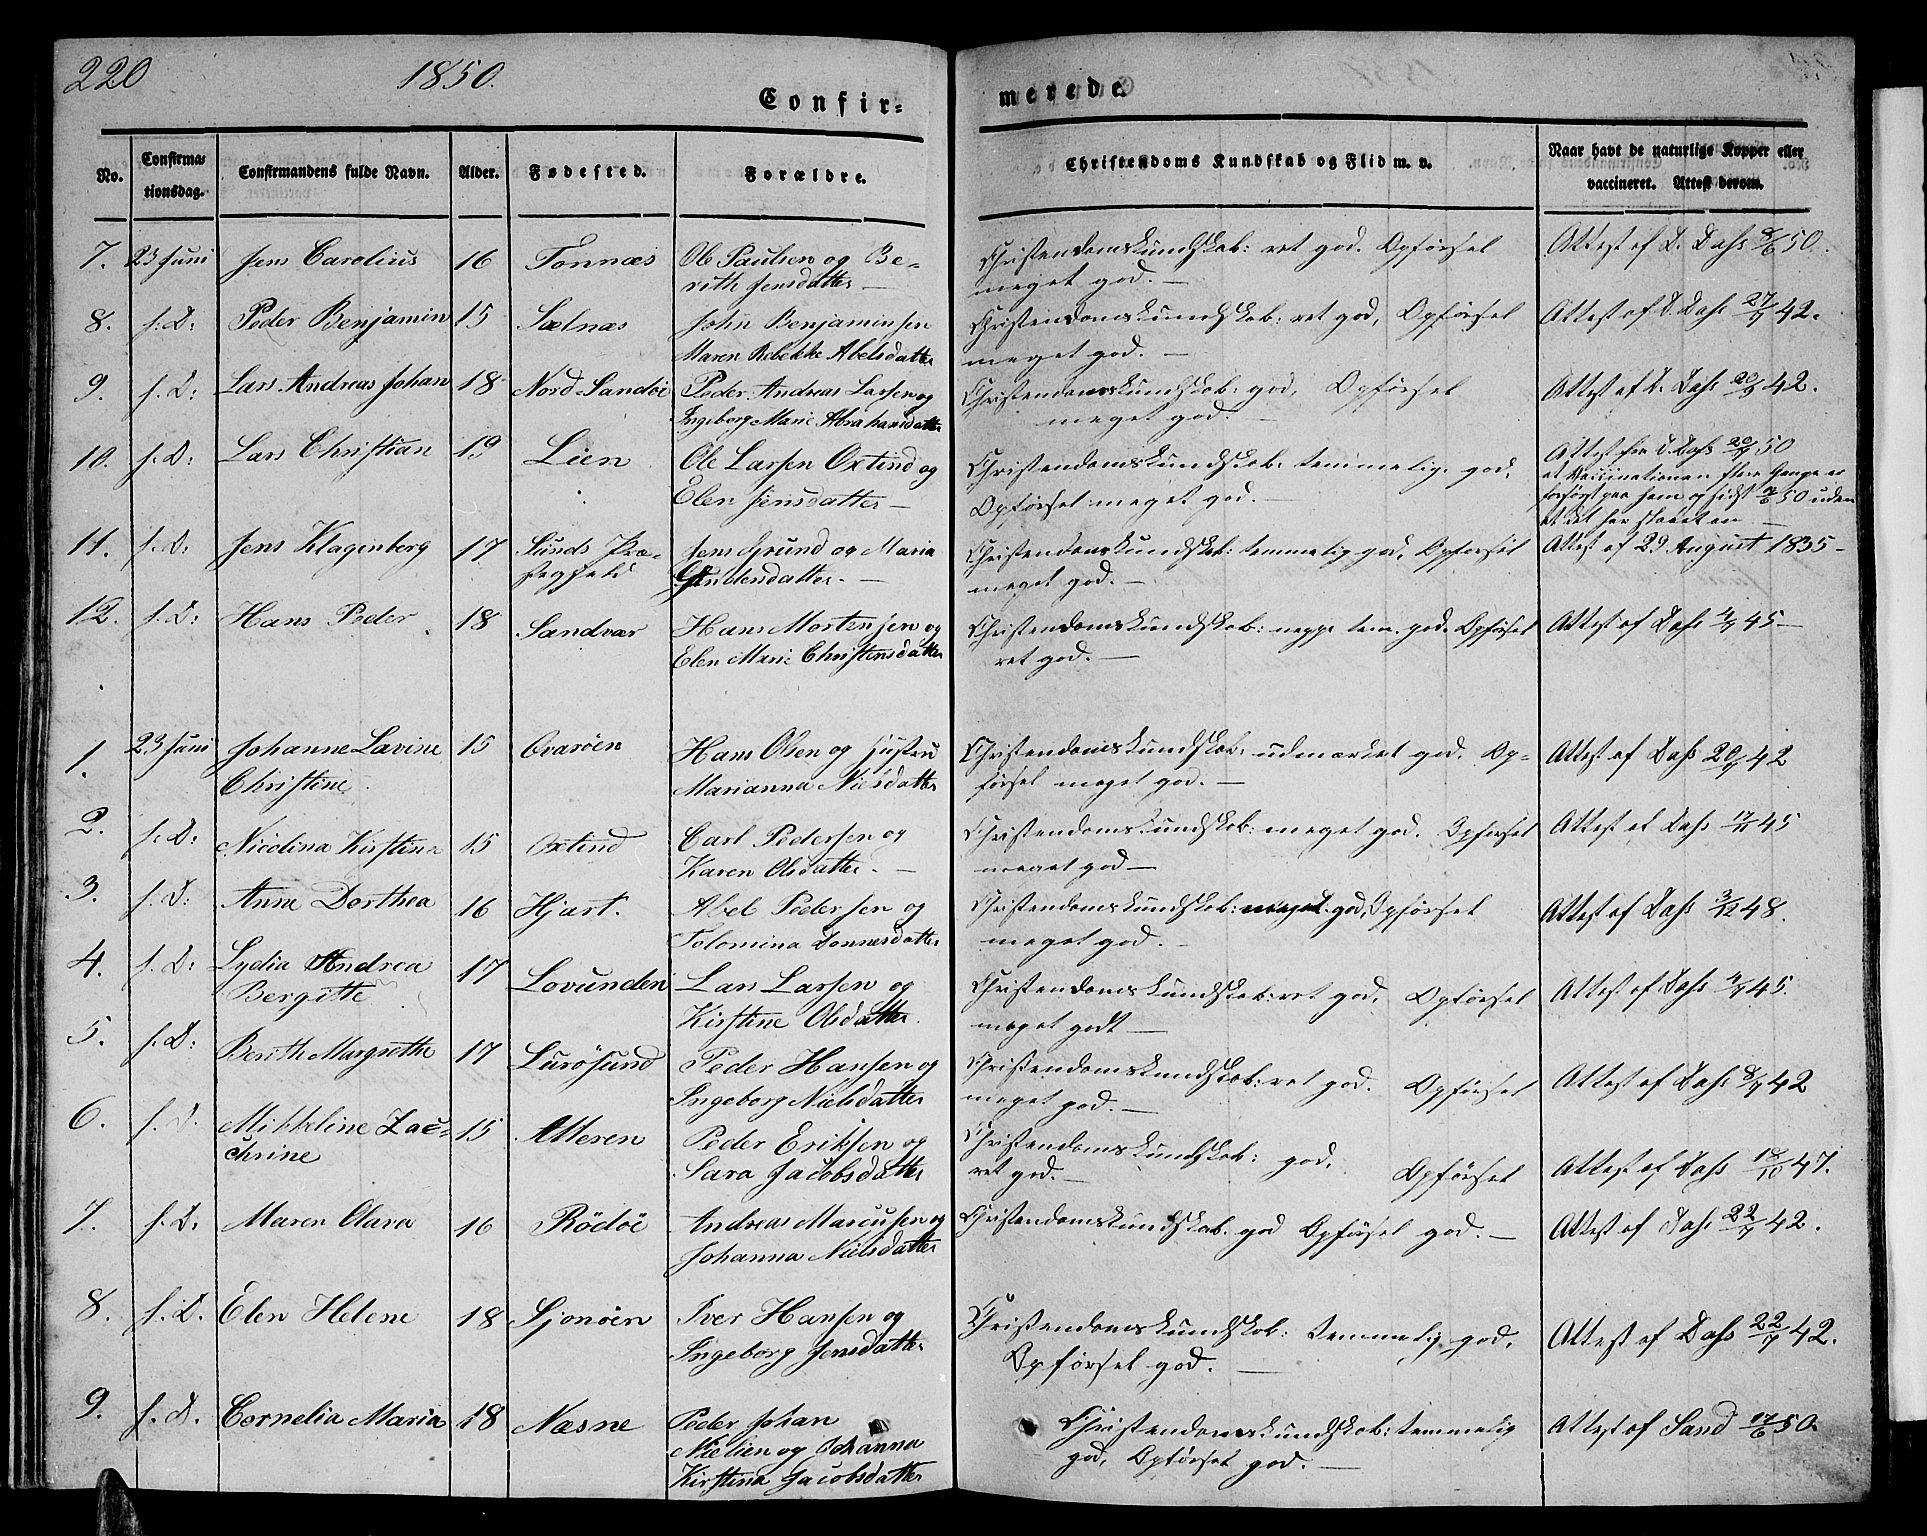 220
1850.
Confir-
merede.
No.
Confirma-
tionsdag.
Confirmandens fulde Navn.
Alder.
Fødested.
Forældre.
Christendoms Kundskab og Flid m. v.
Naar havt de naturlige Kopper eller
vaccineret. Attest derom.
7. 23 Juni Jens Carolius 16 Tonnæs Ole Paulsen og Be-
rith Jensdatter —
Christendomskundskab: ret god. Opførsel
meget god. —
Attest af D. Dahs 50.
8. s. D: Peder Benjamin 15 Sælnæs John Benjaminsen
Maren Rebekke Abelsdatter
Christendomskundskab: ret god, Opførsel
meget god. —
Attest af D. Dahs 27/7 42.
9. s. D: Lars Andreas Johan 18 Nord-Sandöe Peder Andreas Larsen og
Ingeborg Marie Abrahamsdatter
Christendomskundskab: god, Opførsel
meget god. —
Attest af D. Dahs 42.
10. s. D: Lars Christian 19 Lien Ole Larsen Oxtind og
Elen Jensdatter —
Christendomskundskab: temmelig god.
Opførsel meget god. —
Attest fra D. Dahs 50
at Vaccinationen flere Gange er
forsögt paa ham og sidst 50 uden
at det har slaaet an —
11. s. D: Jens Klagenberg 17 Lunds Præ-
stegjeld
Jens Grund og Maria
—
Christendomskundskab: temmelig god, Opførsel
meget god. —
Attest af 29 August 1835 —
12. s. D: Hans Peder 18 Sandvær Hans Mortensen og
Elen Marie Christensdatter
Christendomskundskab: neppe tem. god. Opførsel
ret god. —
Attest af Dahs 45 —
1. 23 Juni Johanne Lavine
Christine.
15 Qvarøen Hans Olsen og Hustru
Marianna Nielsdatter
Christendomskundskab: udmærket god. Op-
førsel meget god. —
Attest af Dahs 42
2. s. D: Nicolina Kirstina 15 Oxtind Carl Pedersen og
Karen Olsdatter. —
Christendomskundskab: meget god. Opførsel
meget god —
Attest af Dahs 45
3. s. D: Anne Dorthea 16 Hjart. Abel Pedersen og
Tolomina Tønnesdatter
Christendomskundskab: meget god, Opførsel
meget god. —
Attest af Dahs 3/12 48.
4. s. D: Lydia Andrea
Bergitte
17 Lovunden Lars Larsen og
Kirstine Olsdatter.
Christendomskundskab: ret god. Opførsel
meget godt —
Attest af Dahs 45.
5. s. D: Berith Margrethe 17 Lurösund Peder Hansen og
Ingeborg Nielsdatter
Christendomskundskab: ret god. Opførsel
meget god. —
Attest af Dahs 42
6. s. D. Mikkeline Zac-
chrine
15 Alteren Peder Eriksen og
Sara Jacobsdatter
Christendomskundskab: god. Opførsel
ret god. —
Attest af Dahs 18/10 47.
7. s. D: Maren Olava 16 Rödöe Andreas Marcusen og
Johanna Nielsdatter
Christendomskundskab. god Opførsel god. —
Attest af Dahs 22/7 42.
8. s. D. Elen Helene 18 Sjonöen Iver Hansen og
Ingeborg Jensdatter
Christendomskundskab: temmelig god.
Opførsel god. —
Attest af Dahs 22/7 42.
9. s. D. Cornelia Maria 18 Næsne Peder Johan
Nielsen og Johanna
Kirstina Jacobsdatter
Christendomskundskab: temmelig
god, Opførsel god. —
Attest af Sand 17/6 50.